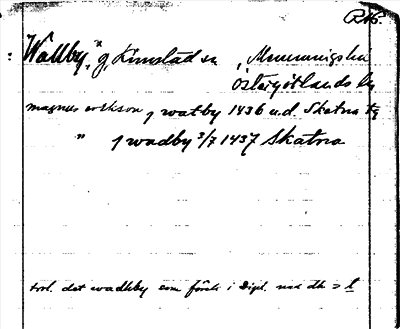 RAP.
Wallby, g, Kimstad sn, Memmingshd
Östergötlands län
magnus erikson j watby 1436 u.d. Skatna tg
" j wadby 3/7 1437 Skatna
trol. det wadhby som förek i Dipl. med dh > l